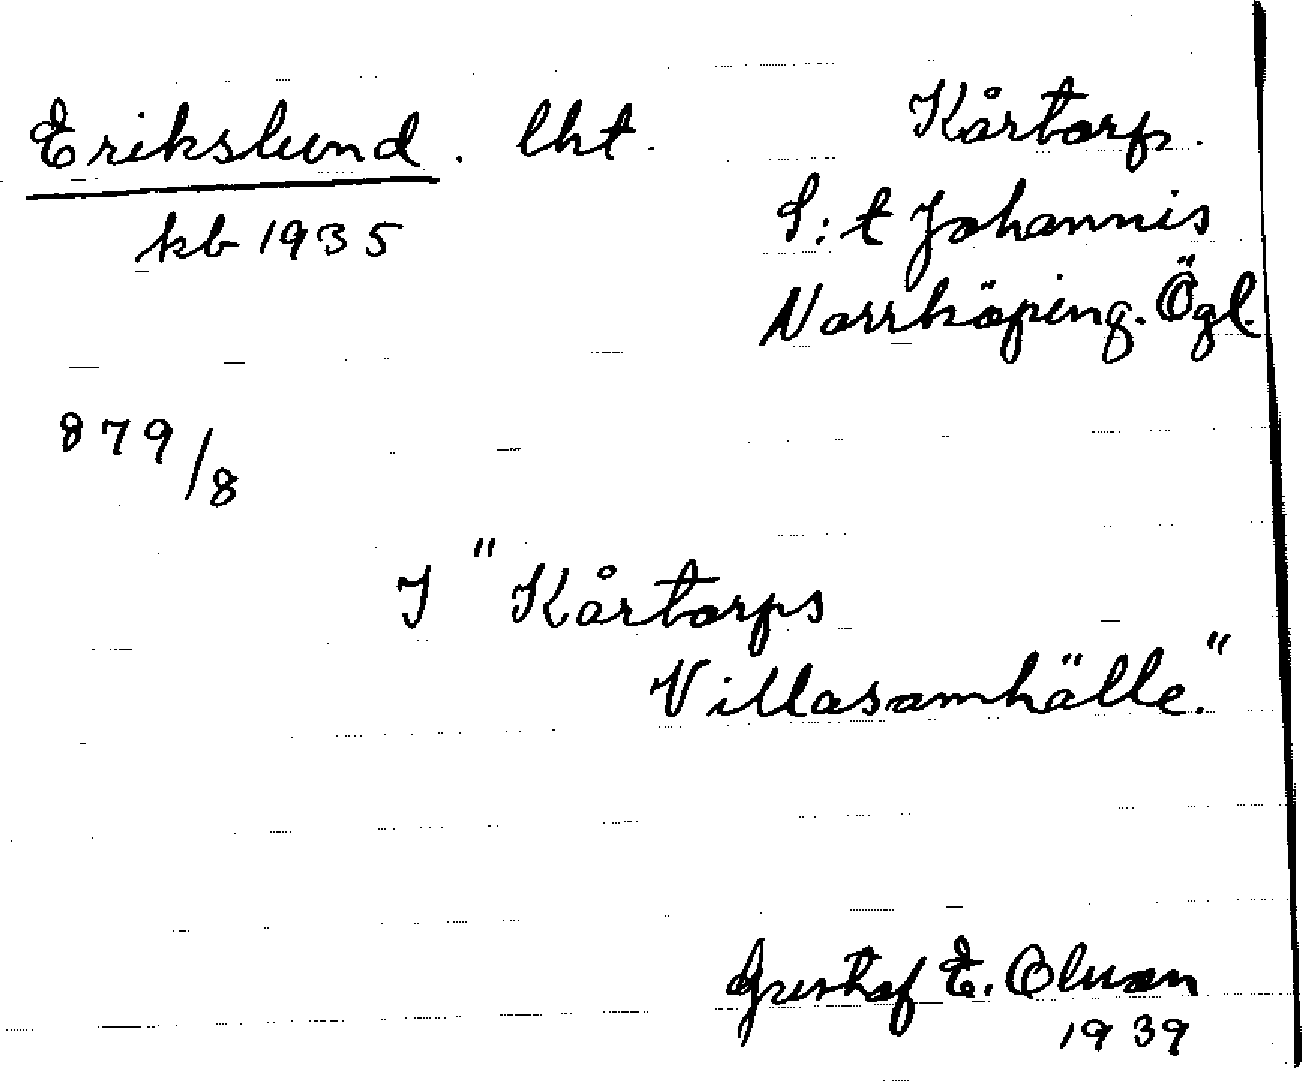 Erikslund. lht. Kårtorp.
kb 1935
S:t Johannis
Norrköping. Ögl.
879/8
I "Kårtorps
Villasamhälle."
Gustaf E. Olsson
1939